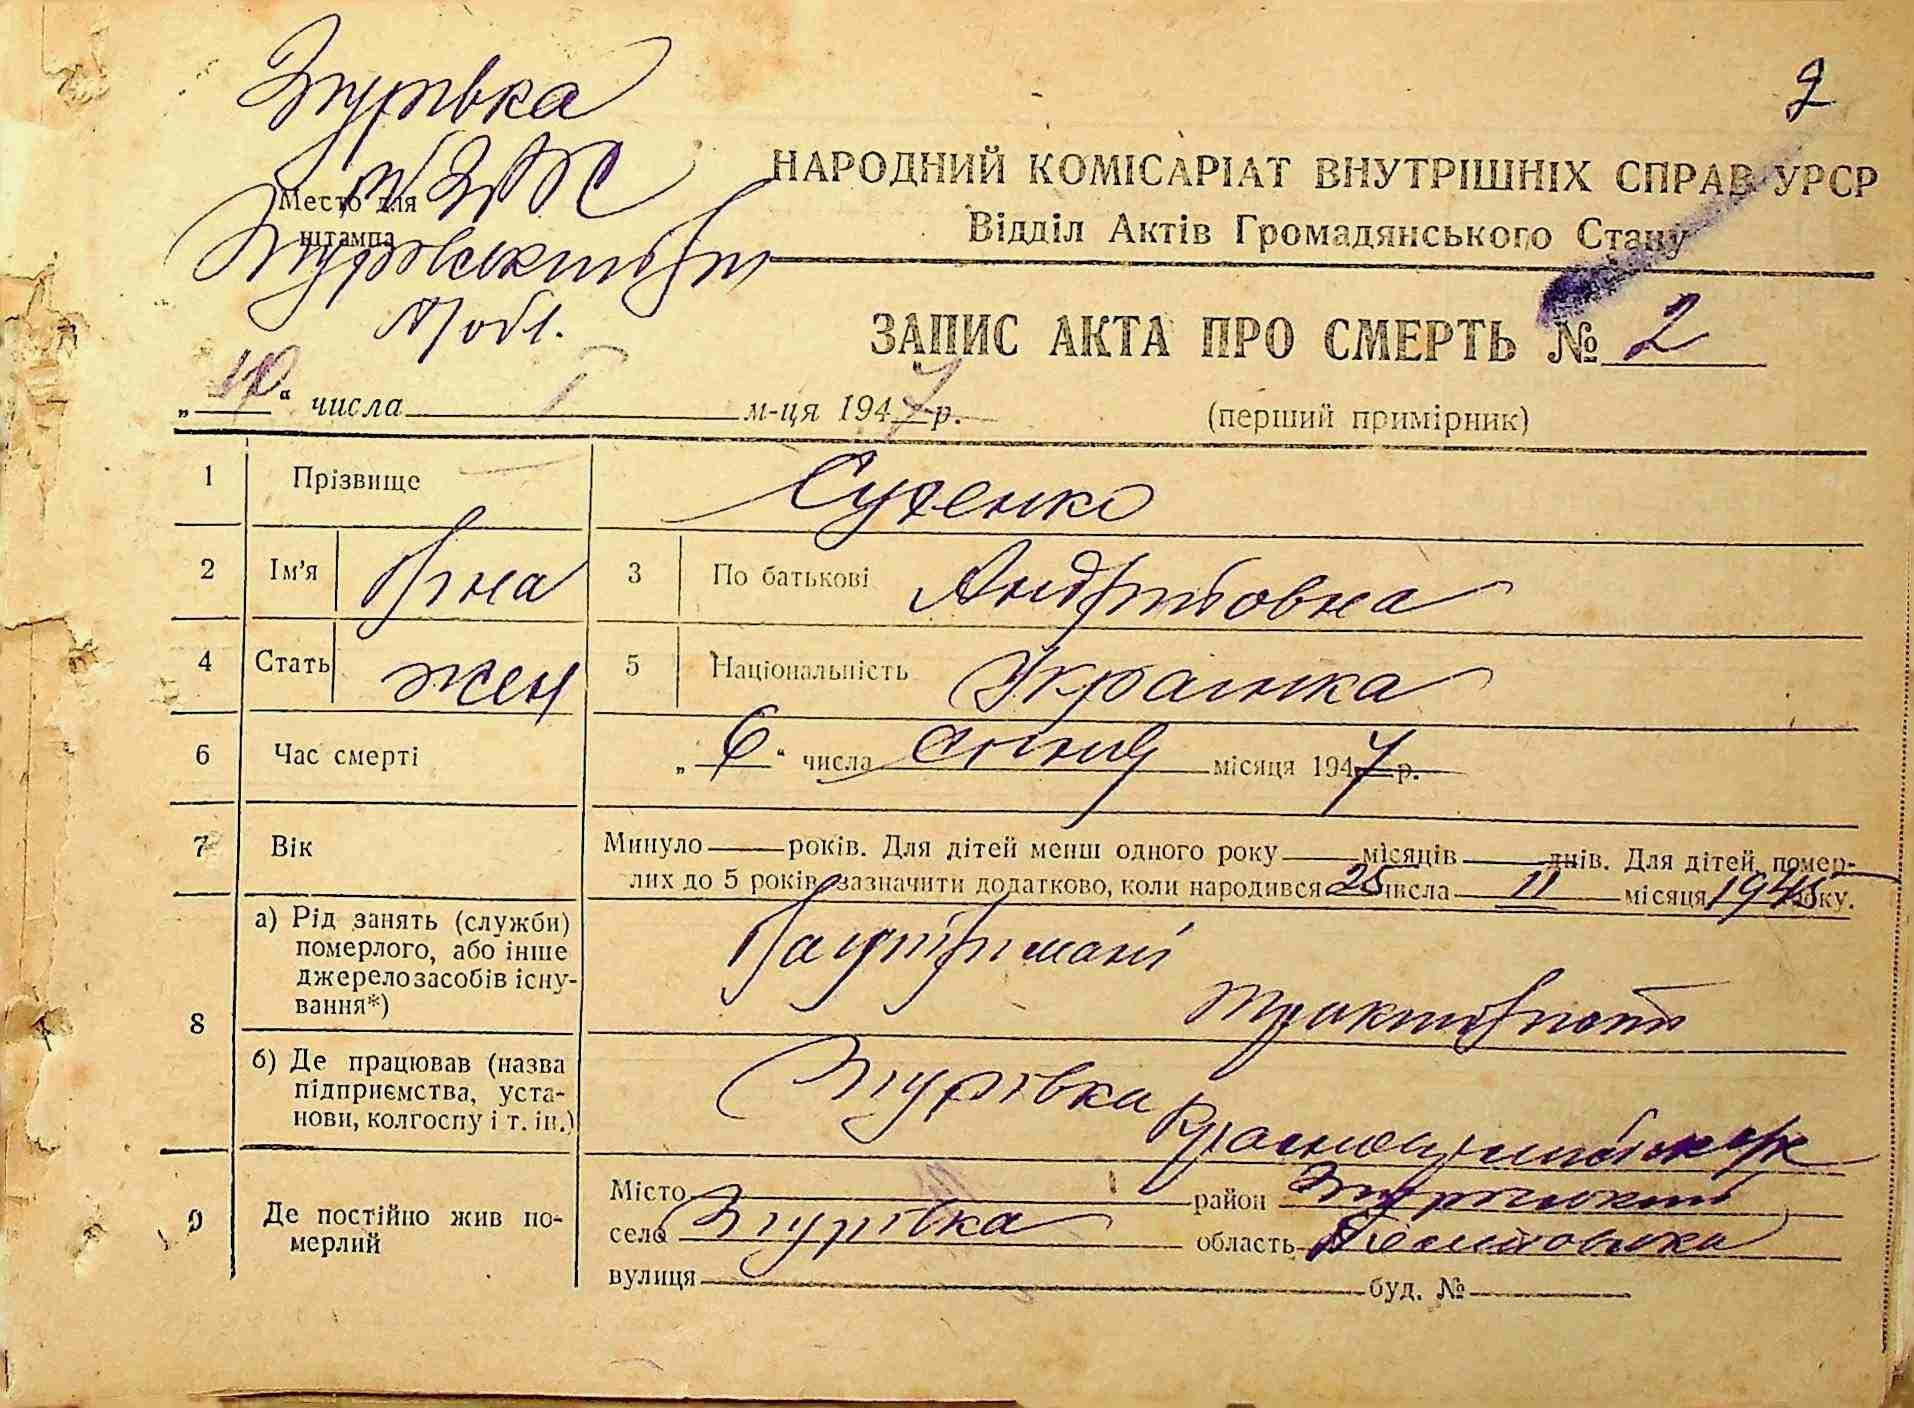 Згурівка
ЗАГС
Место для
штампа
П/обл.
2
НАРОДНИЙ КОМІСАРІАТ ВНУТРІШНІХ СПРАВ УРСР
Відділ Актів Громадянського Стану
ЗАПИС АКТА ПРО СМЕРТЬ № 2
„10“ числа I м-ця 1947 р. (перший примірник)
1 Прізвище Сухенко
2 Ім'я 3 По батькові Андріївна
4 Стать жен 5 Національність Українка
6 Час смерті „6“ числа Січня місяця 1947 р.
7 Вік Минуло років. Для дітей менш одного року місяців днів. Для дітей, помер-
лих до 5 років, зазначити додатково, коли народився 25 числа 11 місяця 1945 року.
8 а) Рід занять (службы) померлого, або інше джерело засобів існування*) На утріманні
б) Де працював (назва підприємства, установи, колгоспу і т. ін.) Згурівка
9 Де постійно жив померлий Місто район Згурівський
село Згурівка область Полтавська
вулиця буд. №